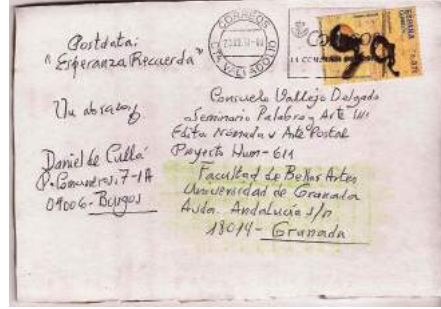 Postdata:
"Esperanza Recuerda"
Un abrazo,
Daniel de Cullá
Pº Comuneros, 7-1A
09006-Burgos
CORREOS
VALLADOLID
Correos
ESPAÑA
Consuelo Vallejo Delgado
Seminario Palabra y Arte
Edita Nómada y Arte Postal
Proyecto Hum-611
Facultad de Bellas Artes
Universidad de Granada
Avda. Andalucía s/n
18014-Granada